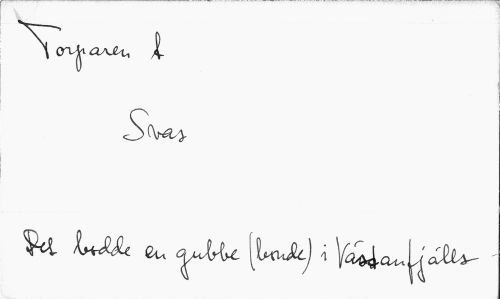 Torparen &
Svas
Det bodde en gubbe (bonde) i Västanfjälls -